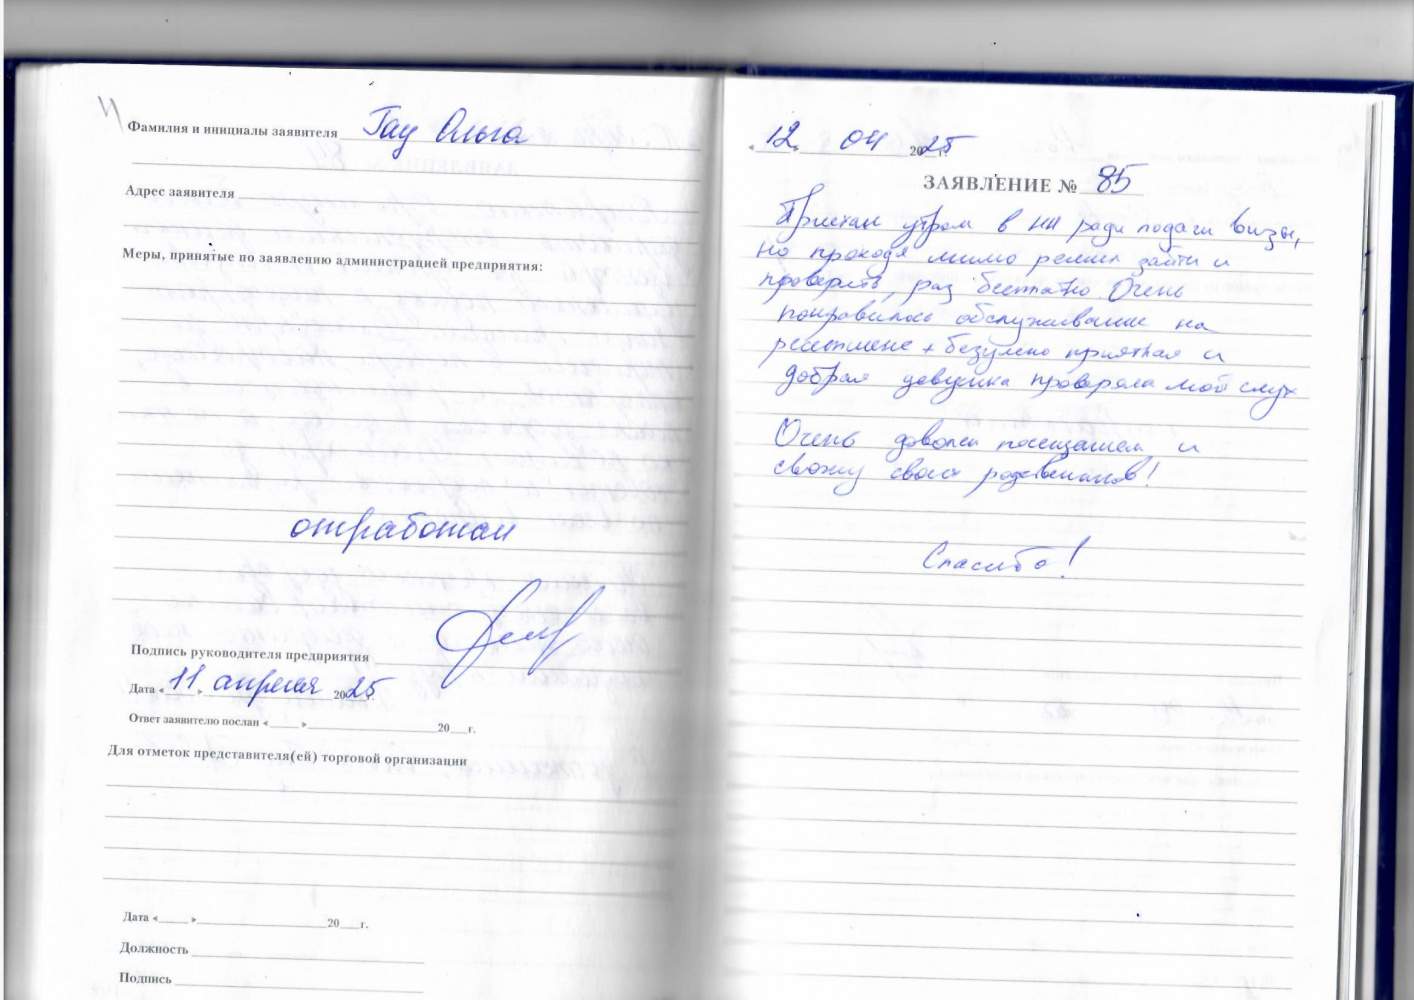 Фамилия и инициалы заявителя Гау Ольга
Адрес заявителя
Меры, принятые по заявлению администрацией предприятия:
отработан
Подпись руководителя предприятия
Дата « 11 » апреля 2025 г.
Ответ заявителю послан «____» ____ 20__г.
Для отметок представителя(ей) торговой организации
Дата «____» ____ 20__г.
Должность
Подпись
« 12 » 04 2025 г.
ЗАЯВЛЕНИЕ № 85
Приехал утром в НН ради подачи визы,
но проходя мимо решил зайти и
проверить, раз бесплатно. Очень
понравилось обслуживание на
ресепшене + безумно приятная и
добрая девушка проверяла мой слух
Очень доволен посещением и
свожу своих родственников!
Спасибо!